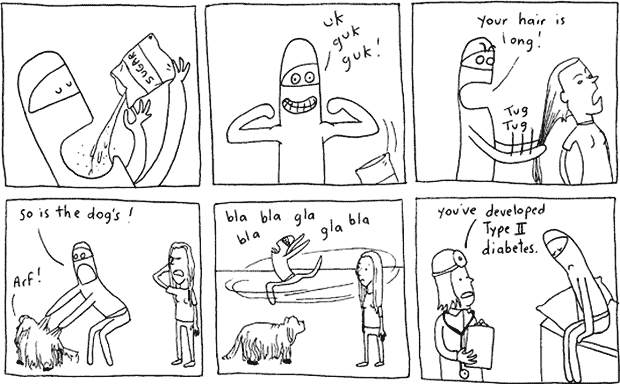 SUGAR
uk
guk
guk!
your hair is
long!
Tug
Tug
so is the dog's!
Arf!
bla bla gla
bla gla bla
you've developed
Type II
diabetes.